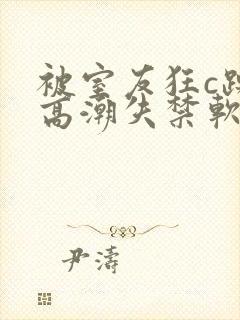 被室友狂c躁
高潮失禁軟
尹濤